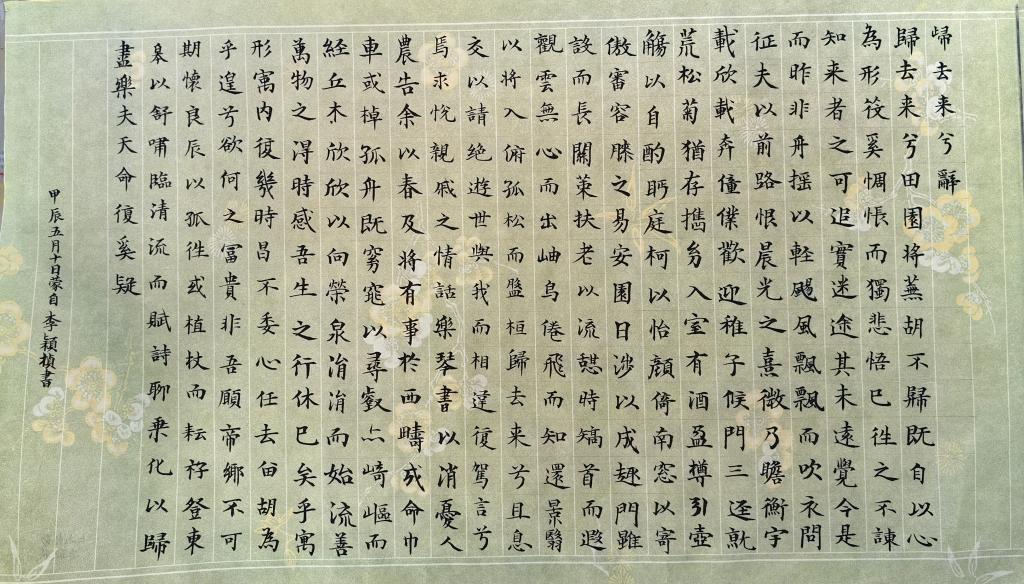 歸去来兮辭
歸去来兮田園将蕪胡不歸既自以心
為形役奚惆悵而獨悲悟已往之不諫
知来者之可追實迷途其未遠覺今是
而昨非舟揺以軽颺風飄飄而吹衣問
征夫以前路恨晨光之熹微乃瞻衡宇
載欣載奔僮僕歡迎稚子候門三逕就
荒松菊猶存攜幼入室有酒盈樽引壺
觴以自酌眄庭柯以怡顔倚南窓以寄
傲審容膝之易安園日渉以成趣門雖
設而長關策扶老以流憩時矯首而遐
觀雲無心而出岫鳥倦飛而知還景翳
以将入俯孤松而盤桓歸去来兮且息
交以請絶遊世與我而相違復駕言兮
焉求悅親戚之情話樂琴書以消憂人
農告余以春及将有事於西疇或命巾
車或棹孤舟既窮窕以尋叡亦崎嶇而
経丘木欣欣以向榮泉涓涓而始流善
萬物之得時感吾生之行休已矣乎寓
形寓内復幾時曷不委心任去留胡為
乎遑兮欲何之冨貴非吾願帝郷不可
期懐良辰以孤往或植杖而耘耔登東
皋以舒嘯臨清流而賦詩聊乗化以歸
盡樂夫天命復奚疑
甲辰五月十日蒙自李穎楨書